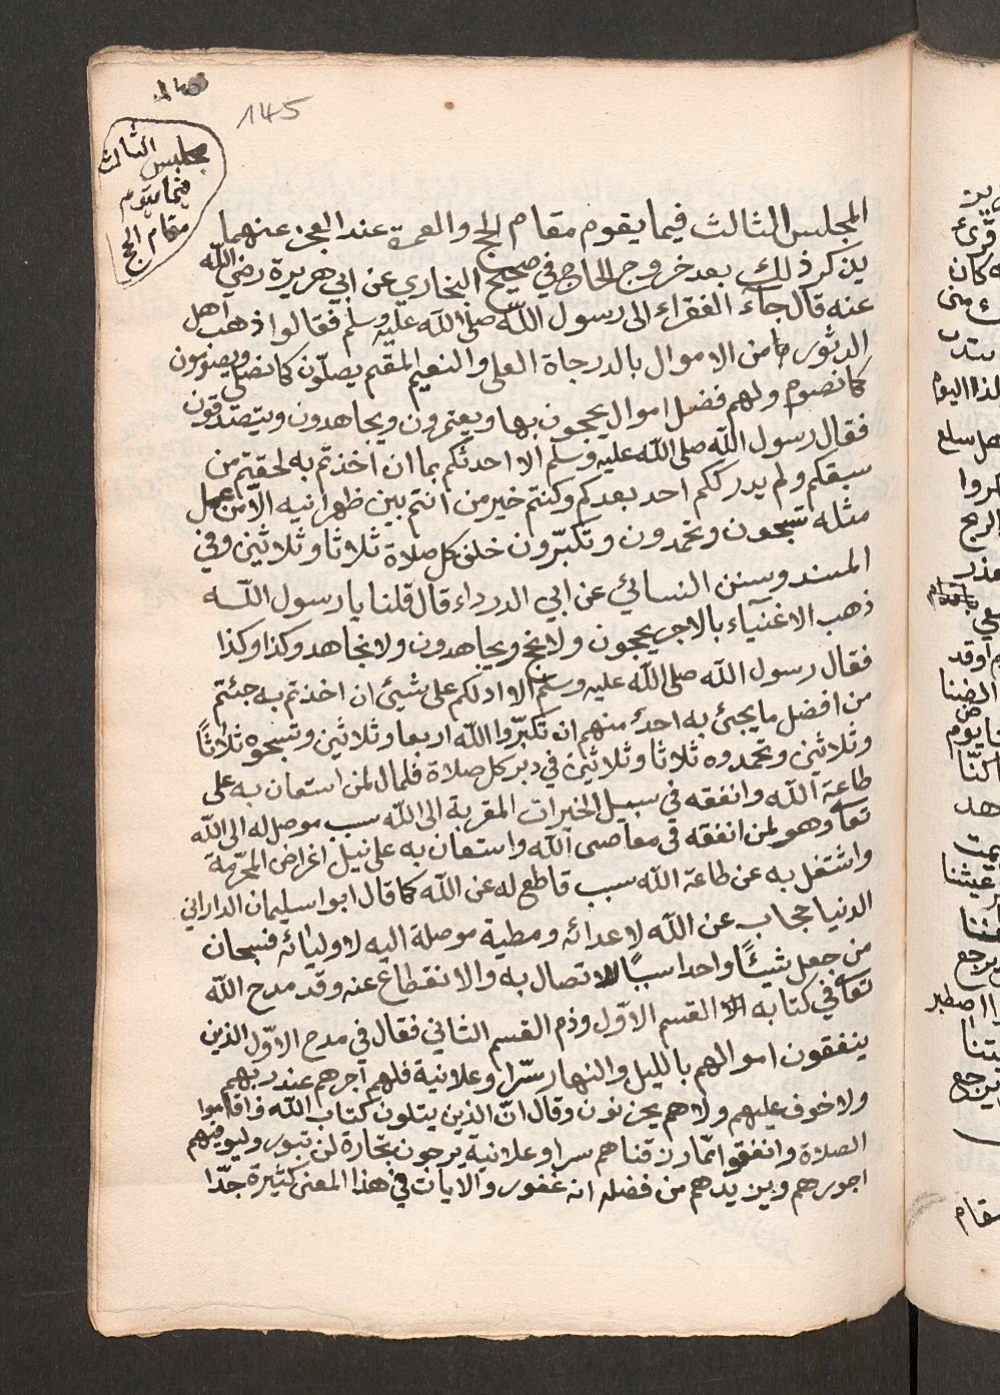 145
مجلس الثالث
فيما يقوم
مقام الحج
المجلس الثالث فيما يقوم مقام الحج والعمرة عند العجز عنهما
يذكر ذلك بعد خروج الحاج في صحيح البخاري عن ابي هريرة رضي الله
عنه قال جآء الفقراء الى رسول الله صلى الله عليه وسلم فقالوا ذهب اهل
الدثور من الاموال بالدرجاة العلى والنعيم المقيم يصلّون كما نصلي ويصومون
كما نصوم ولهم فضل اموال يحجون بها ويعتمرون ويجاهدون ويتصدقون
فقال رسول الله صلى الله عليه وسلم الا احدثكم بما ان اخذتم به لحقتم من
سبقكم ولم يدرككم احد بعدكم وكنتم خير من انتم بين ظهرانيه الا من عمل
مثله تسبحون وتحمدون وتكبّرون خلف كل صلاة ثلاثا وثلاثين وفي
المسند وسنن النسائي عن ابي الدرداء قال قلنا يا رسول الله
ذهب الاغنيآء بالاجر يحجون ولا نحج ويجاهدون ولا نجاهد وكذا وكذا
فقال رسول الله صلى الله عليه وسلم الا ادلكم على شيئ ان اخذتم به جئتم
من افضل ما يجئ به احد منهم ان تكبّروا الله اربعا وثلاثين وتسبحوه ثلاثًا
وثلاثين وتحمدوه ثلاثا وثلاثين في دبر كل صلاة فلمال لمن استعان به على
طاعة الله وانفقه في سبيل الخيرات المقربة الى الله سبب موصل له الى الله
تعا وهو لمن انفقه في معاصى الله واستعان به على نيل اغراض المحرّمة
واشتغل به عن طاعة الله سبب قاطع له عن الله كما قال ابوا سليمان الداراني
الدنيا حجاب عن الله لاعدائه ومطية موصلة اليه لاوليائه فسبحان
من جعل شيئًا واحدا سببًا للاتصال به والانقطاع عنه وقد مدح الله
تعا في كتابه القسم الاوّل وذم القسم الثاني فقال في مدح الاوّل الذين
ينفقون اموالهم بالليل والنهار سرّا وعلانية فلهم اجرهم عند ربهم
ولا خوف عليهم ولا هم يحزنون وقال انّ الذين يتلون كتاب الله واقاموا
الصلاة وانفقوا ممّا رزقناهم سرا وعلانية يرجون تجارة لن تبور وليوفيهم
اجورهم ويزيدهم من فضله انه غفور والايات في هذا المعنى كثيرة جدّا